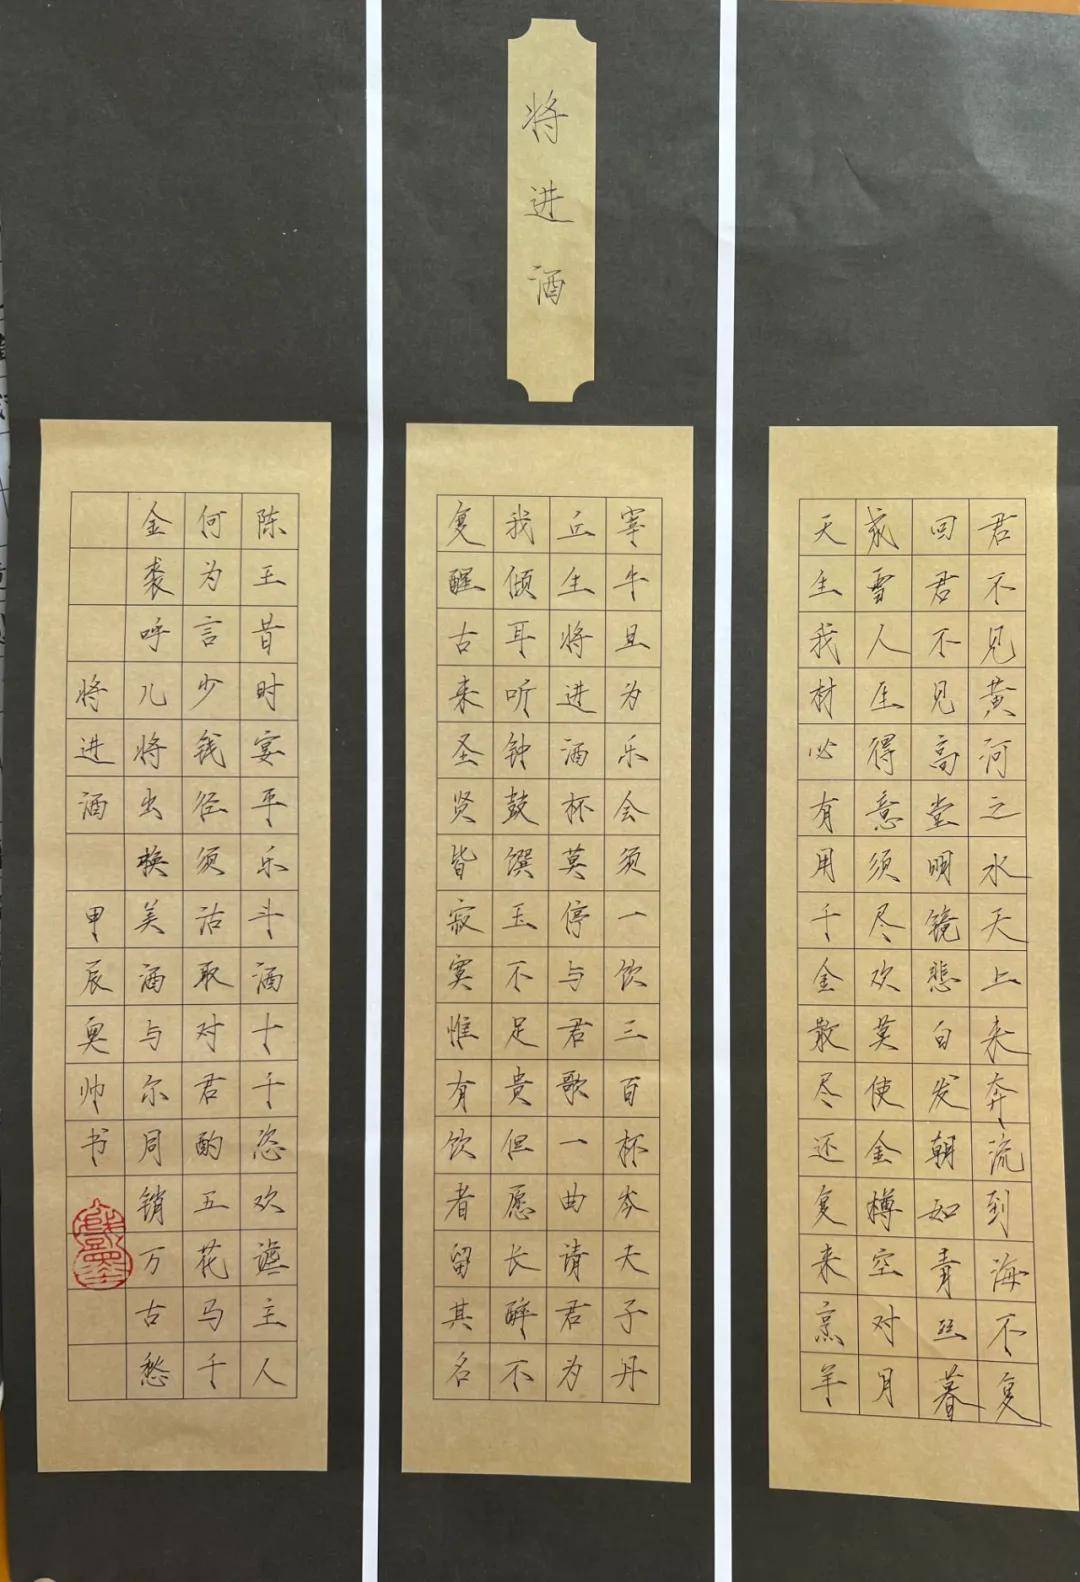 将进酒
君不见黄河之水天上来奔流到海不复
回君不见高堂明镜悲白发朝如青丝暮
成雪人生得意须尽欢莫使金樽空对月
天生我材必有用千金散尽还复来烹羊
宰牛且为乐会须一饮三百杯岑夫子丹
丘生将进酒杯莫停与君歌一曲请君为
我倾耳听钟鼓馔玉不足贵但愿长醉不
复醒古来圣贤皆寂寞惟有饮者留其名
陈王昔时宴平乐斗酒十千恣欢谑主人
何为言少钱径须沽取对君酌五花马千
金裘呼儿将出换美酒与尔同销万古愁
将进酒 甲辰奥帅书